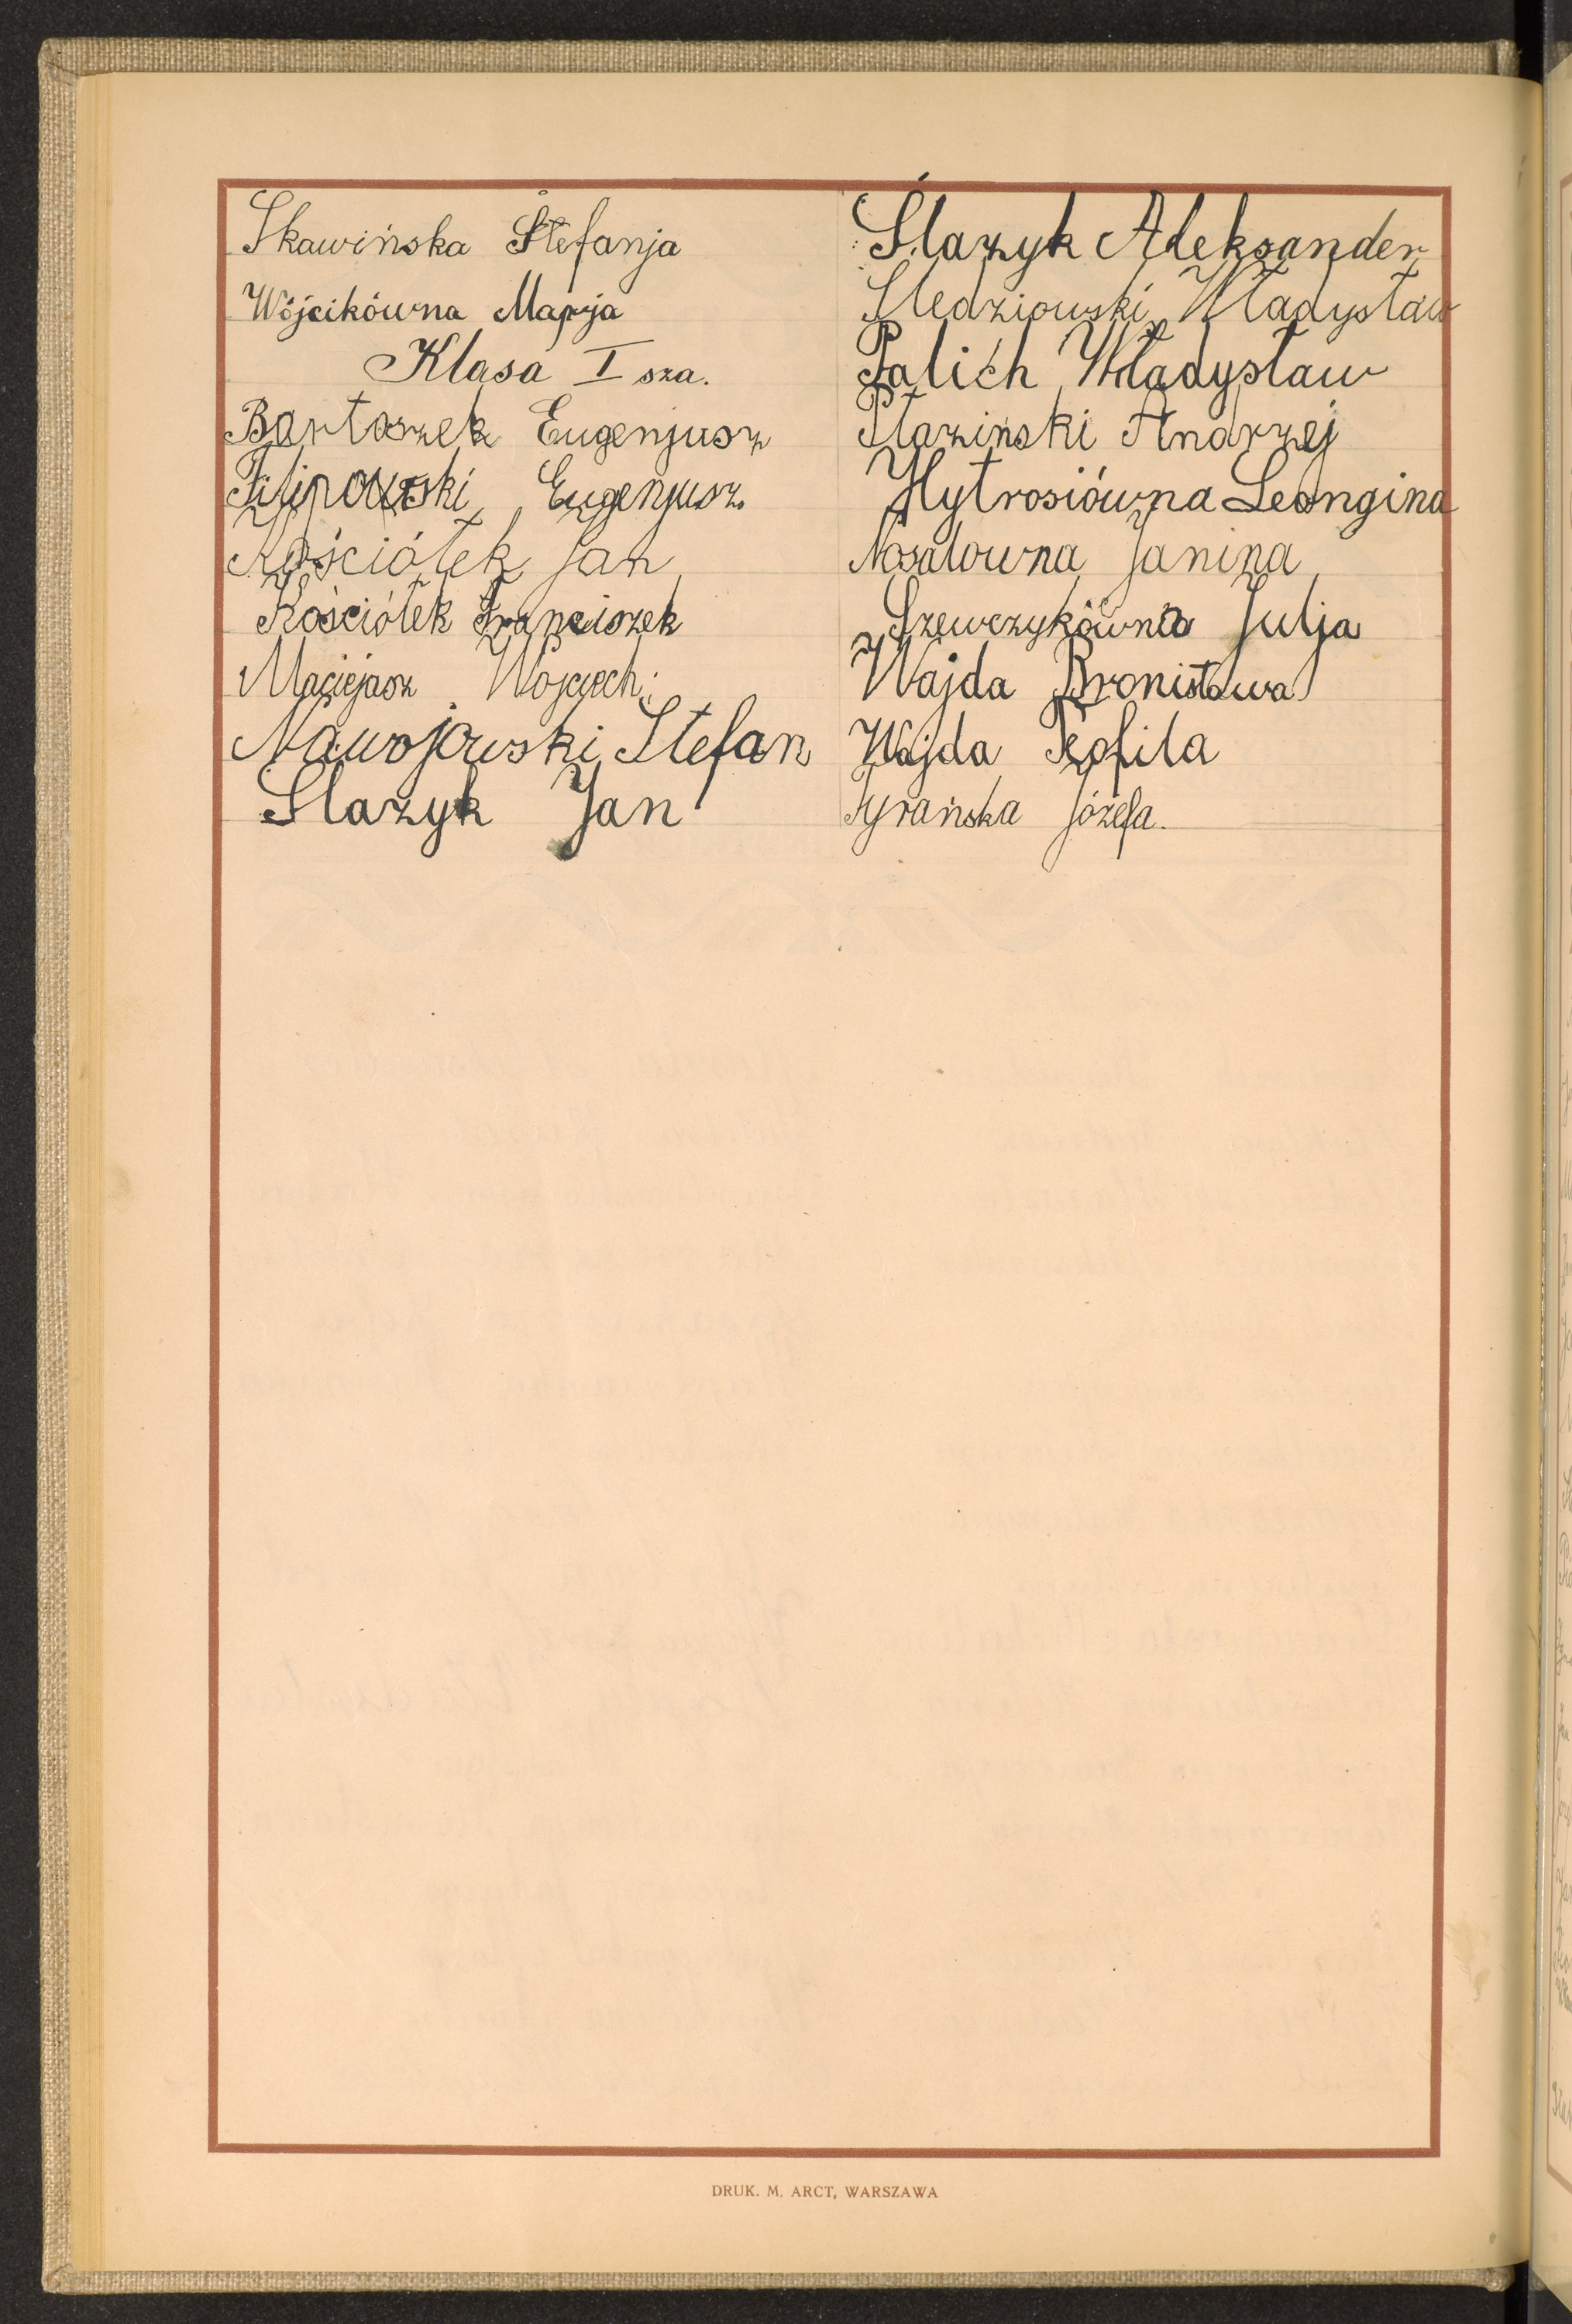 Skawińska Stefanja
Wójcikówna Marja
Klasa I sza.
Bartoszek Eugenjusz
Filipowski Eugenjusz
Kościółek Jan
Kościółek Franciszek
Maciejasz Wojciech
Nawojowski Stefan
Slazyk Jan
Ślazyk Aleksander
Sledziowski Władysław
Palich Władysław
Płaziński Andrzej
Hytrosiówna Leongina
Nosalowna Janina
Szewczykówna Julja
Wajda Bronisława
Wajda Teofila
Tyrańska Józefa.
DRUK. M. ARCT, WARSZAWA